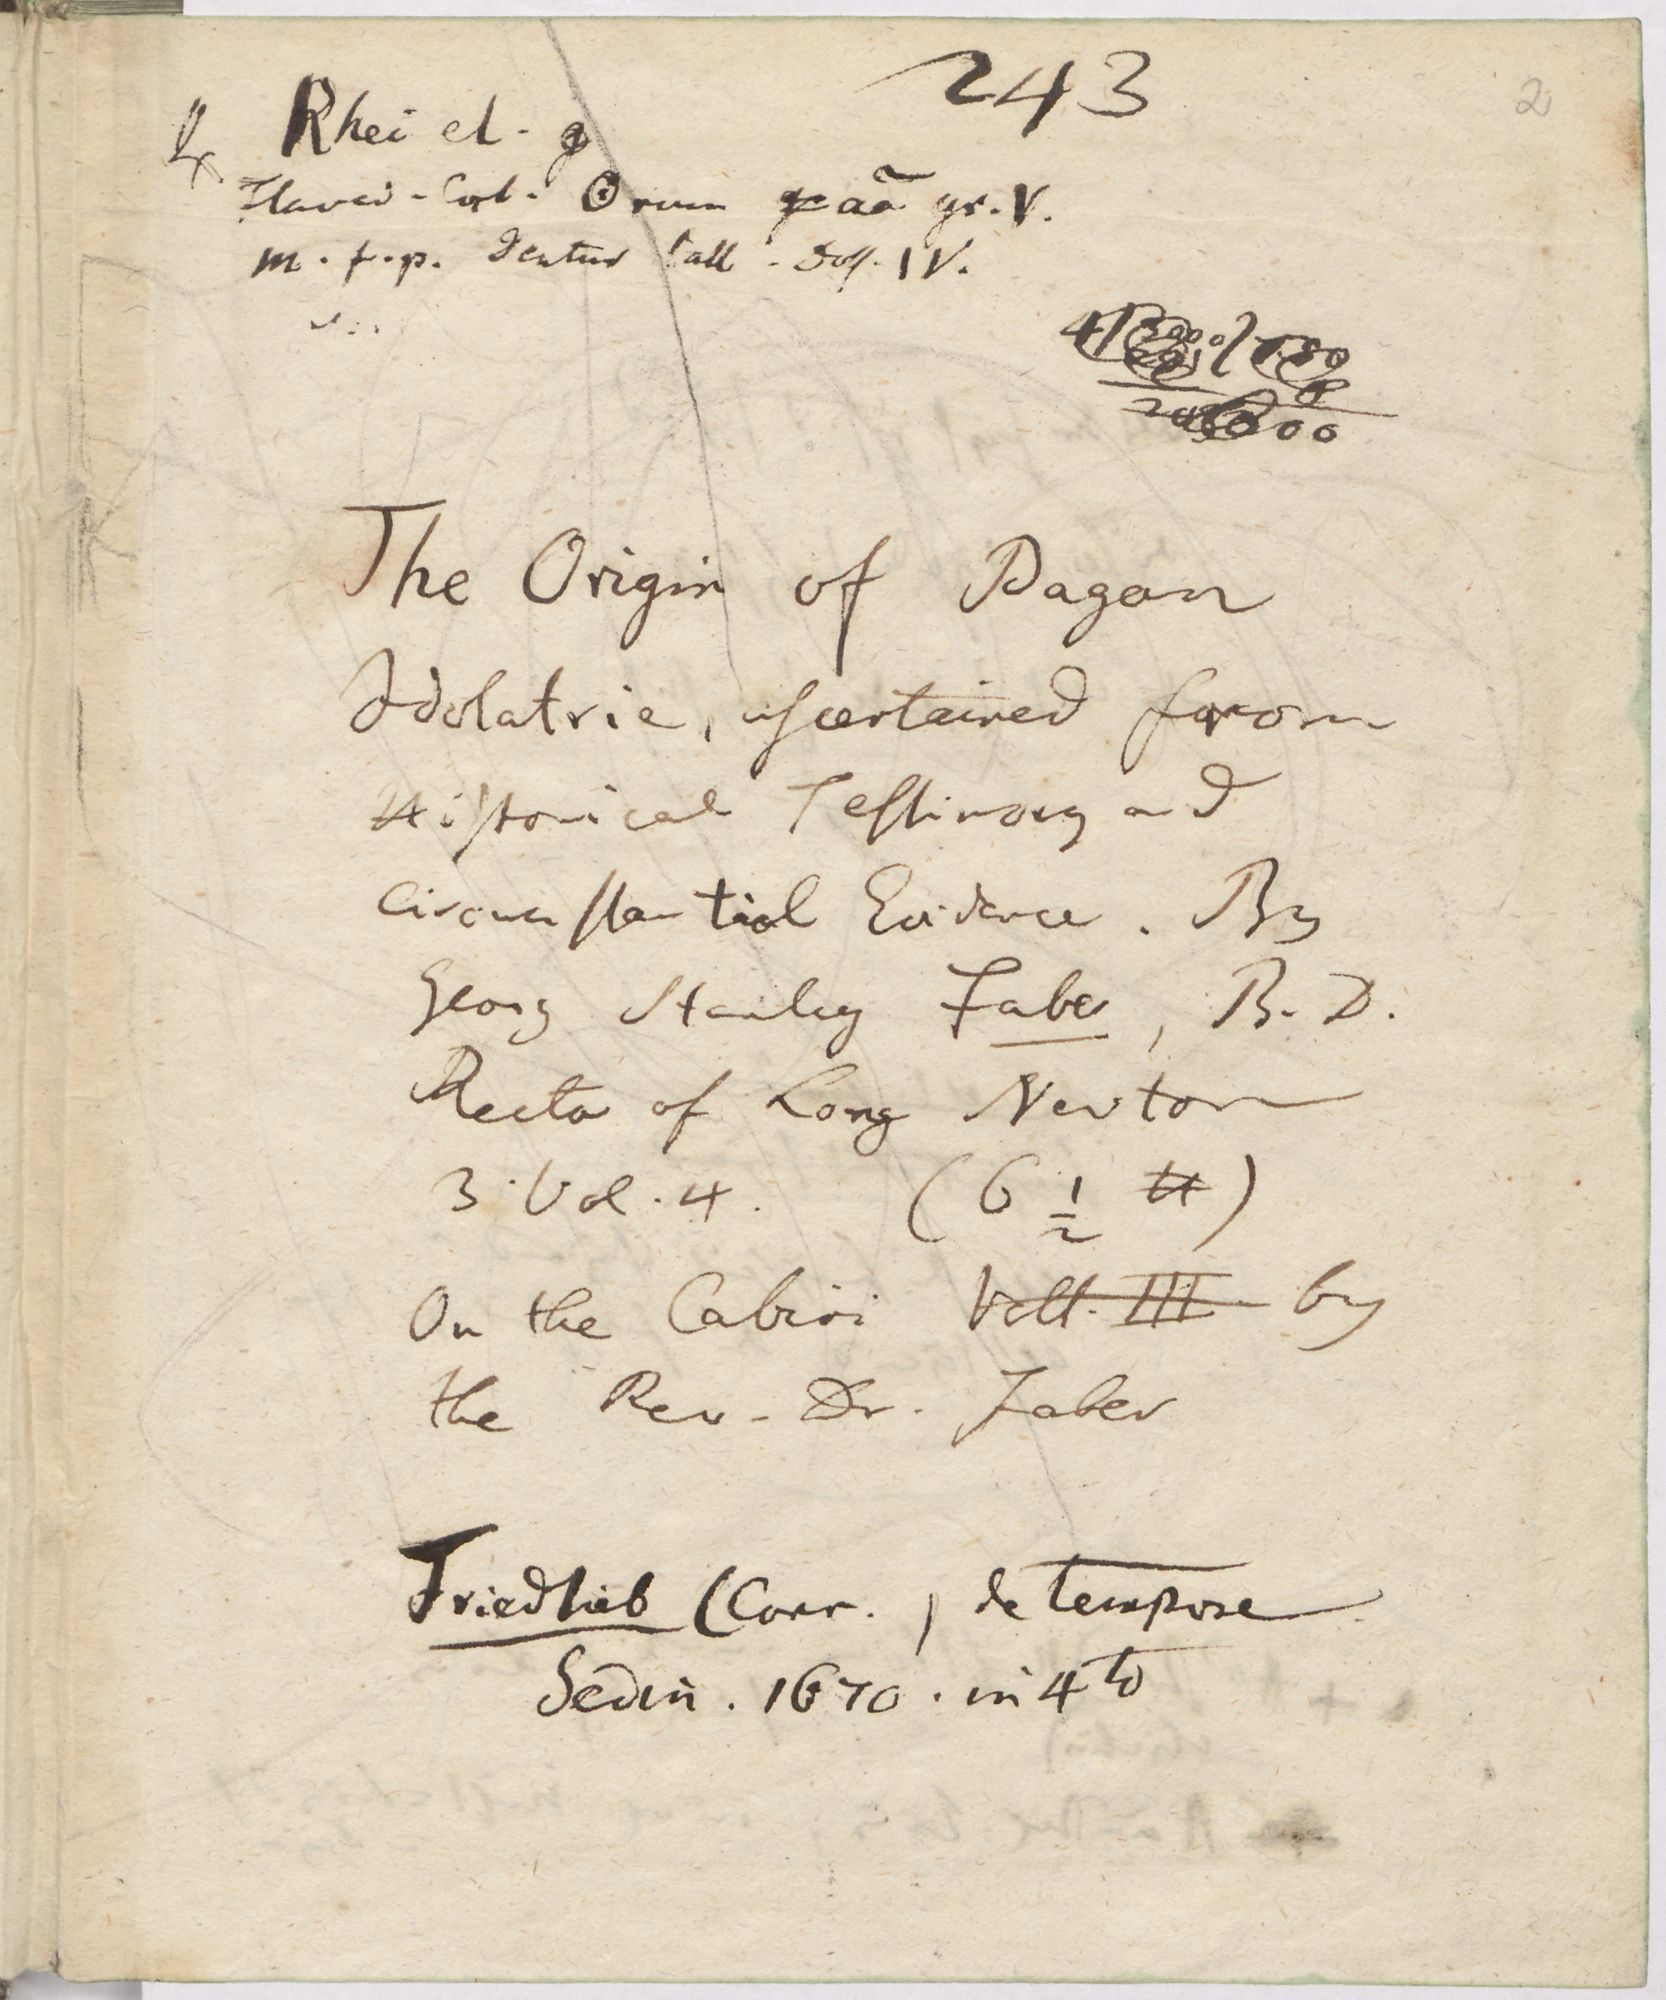 243
2
Rhei el. g
Flaved. Cort. Orum āā gr. V.
m. f. p. dentur tall. Dos. IV.
The Origin of Pagan
Idolatrie, ascertained from
Historical Testimony and
circumstantial Evidence. By
Georg Stanley Faber, B. D.
Rector of Long Newton
3 Vol. 4. (6 1/2 #)
On the Cabiri Voll. III by
the Rev. Dr. Faber
Friedlieb (Conr., de tempore
Sedin. 1670. in 4to